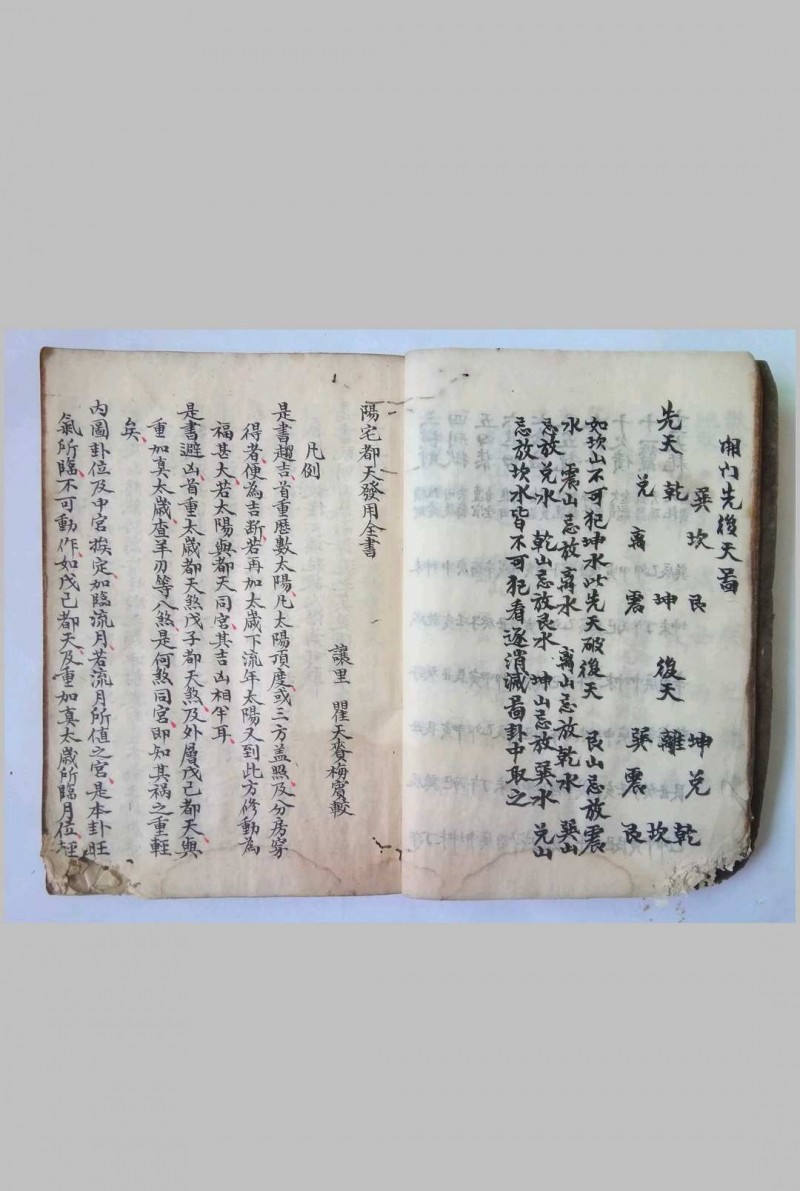 開门先後天啚
巽坎艮
先天乾坤
兌离震
坤兌乾
後天離坎
巽震艮
如坎山不可犯坤水以先天破後天　艮山忌放震
水　震山忌放离水　离山忌放乾水　巽山
忌放兌水　乾山忌放艮水　坤山忌放巽水　兌山
忌放坎水皆不可犯看逐消滅啚卦中取之
陽宅都天發用全書
讓里　瞿天賚梅賓較
凡例
是書趨吉首重歷數太陽凡太陽頂度或三方盖照及分房穿
得者便為吉断若再加太歲下流年太陽又到此方修動為
福甚大若太陽與都天同宮其吉凶相半耳
是書避凶首重太歲都天煞戊子都天煞及外層戊己都天與
重加真太歲查羊刃等八煞是何煞同宮即知其禍之重輕
矣
內圖卦位及中宮挨定加臨流月若流月所值之宮是本卦旺
氣所臨不可動作如戊己都天及重加真太歲所臨月位